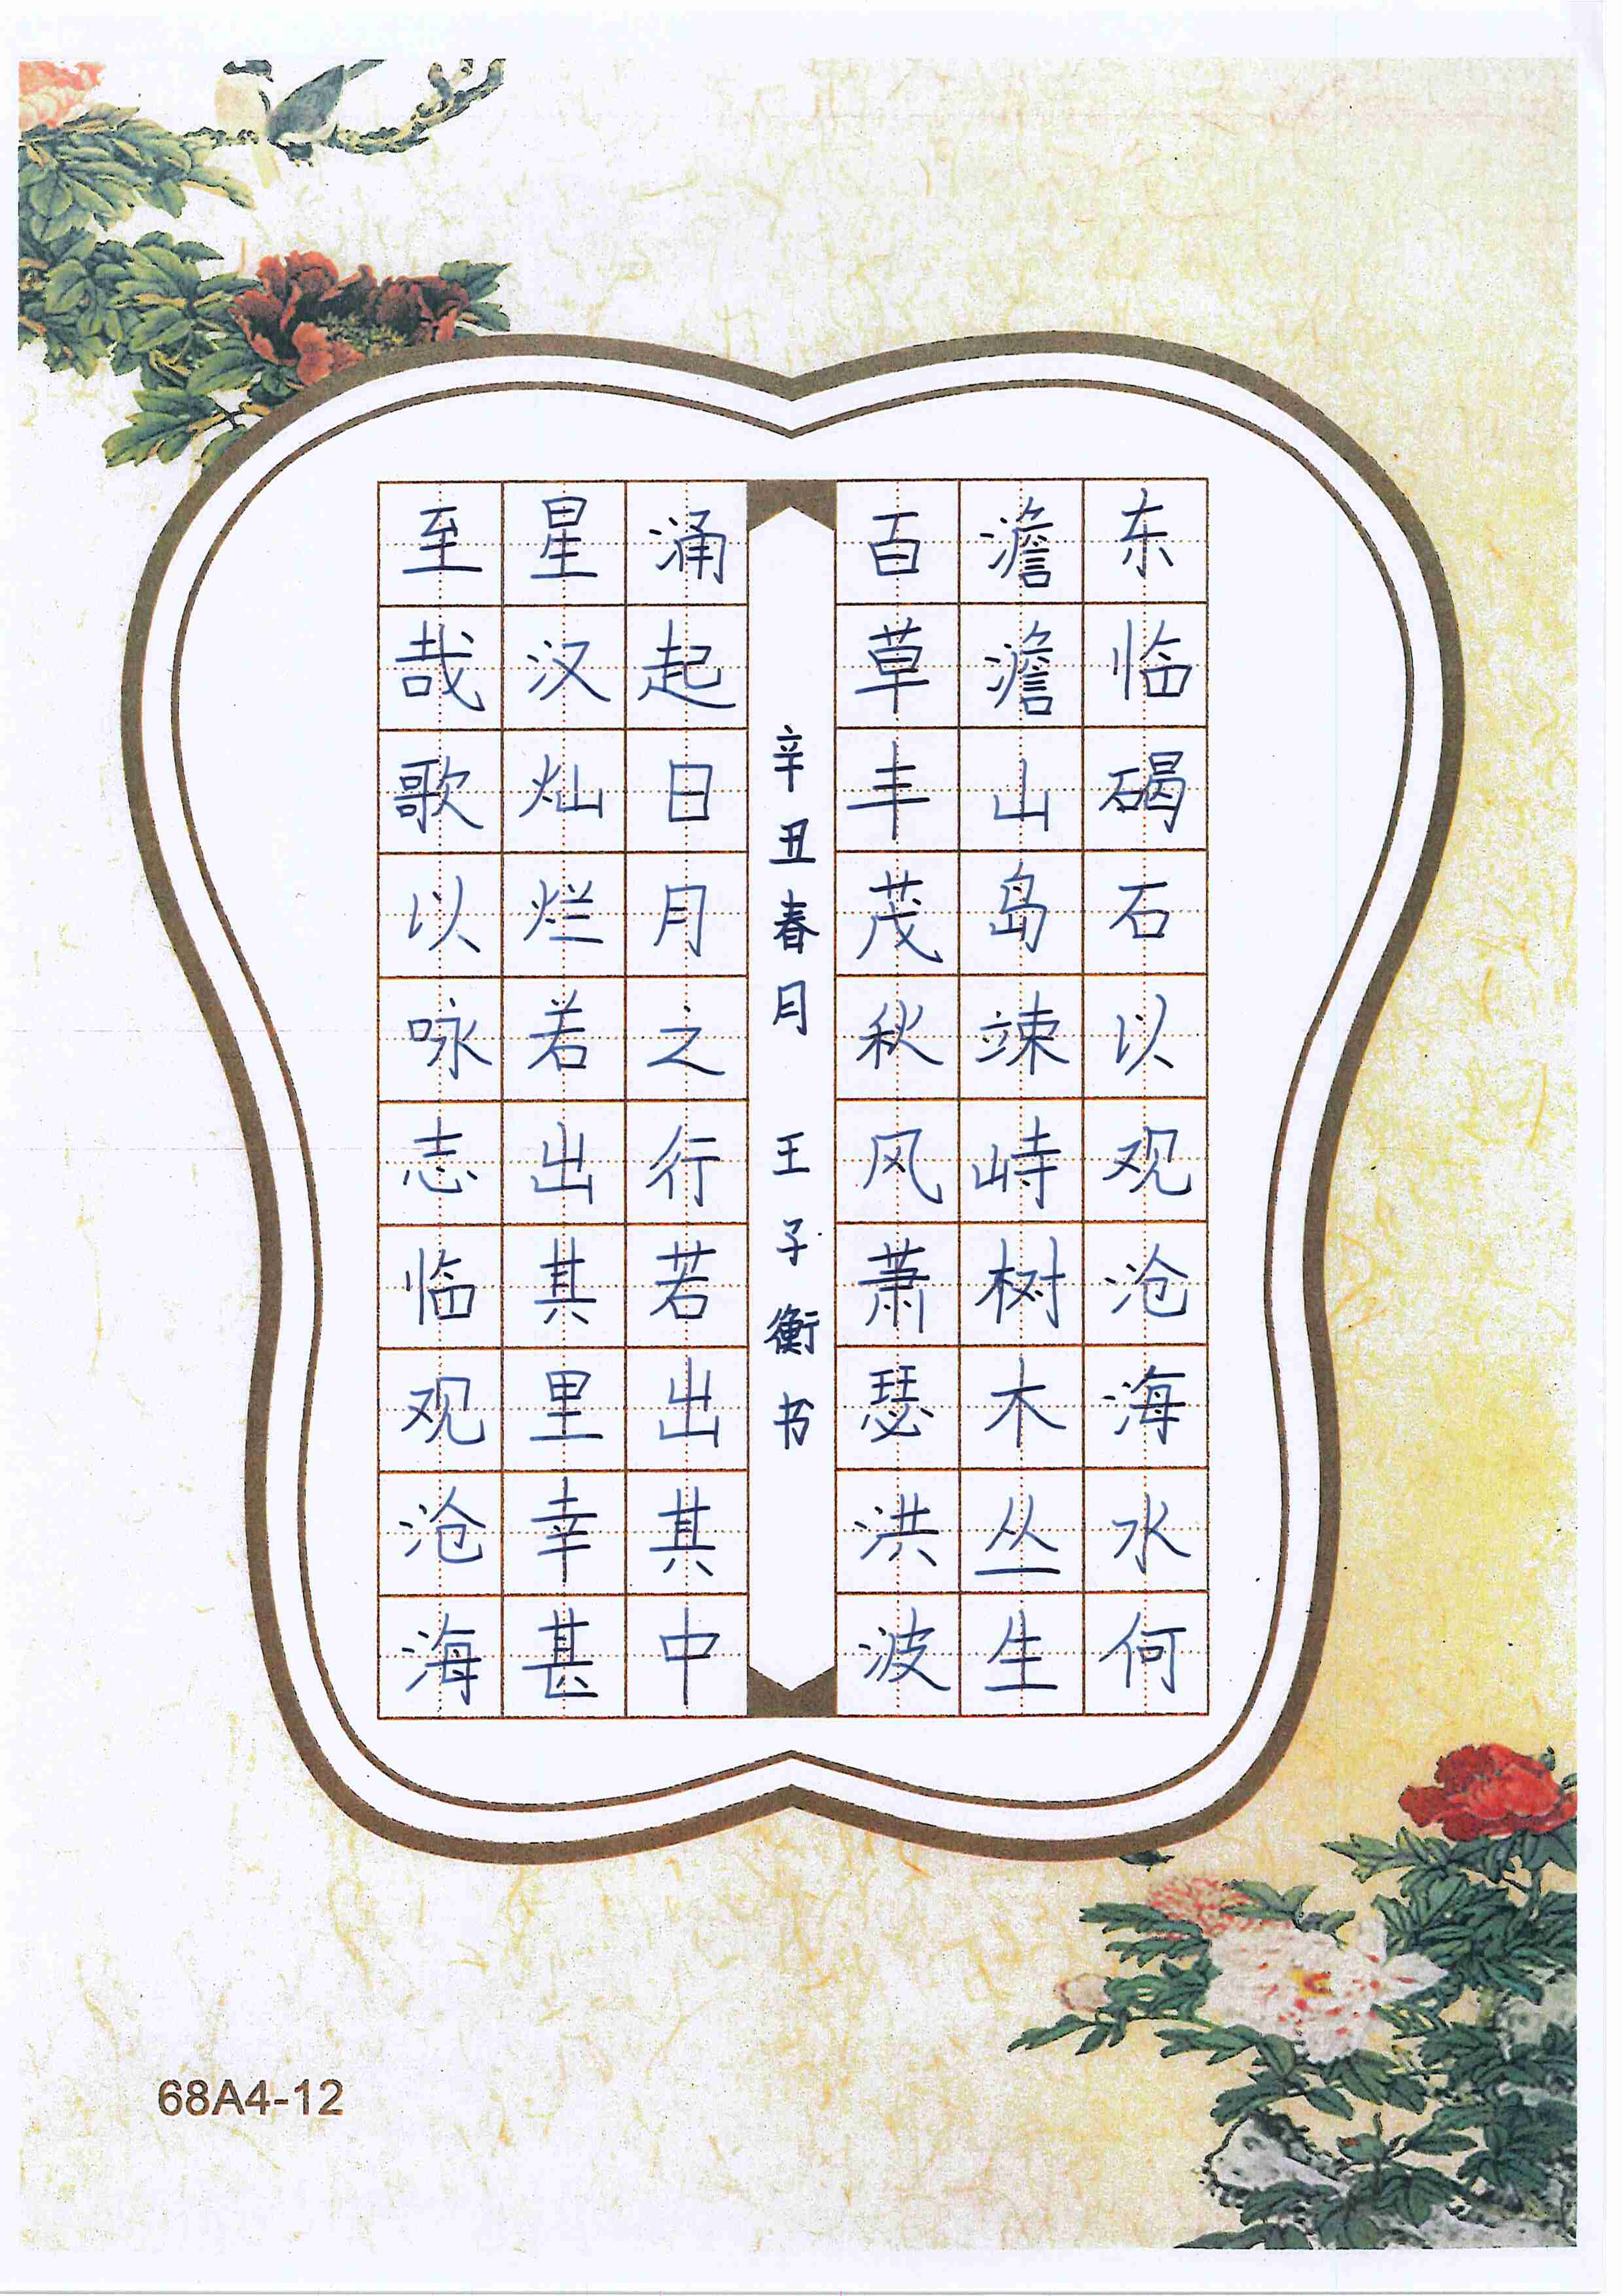 东临碣石以观沧海水何
澹澹山岛竦峙树木丛生
百草丰茂秋风萧瑟洪波
辛丑春月 王子衡书
涌起日月之行若出其中
星汉灿烂若出其里幸甚
至哉歌以咏志临观沧海
68A4-12